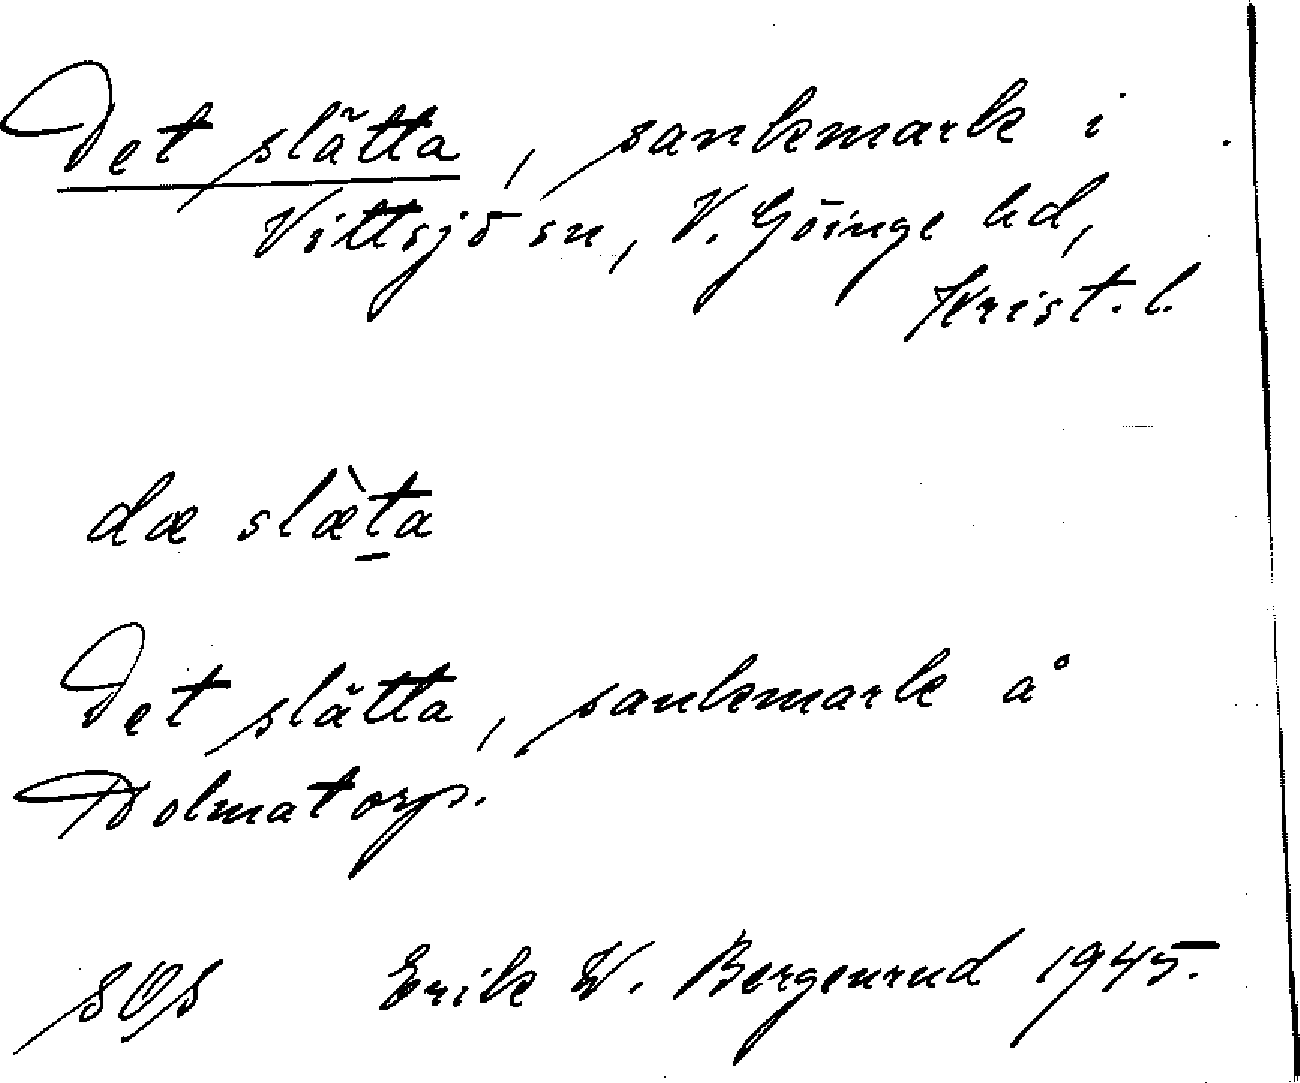 Det slätta, sankmark i
Vittsjö sn, V. Göinge hd,
Krist. l.
dæ slæ̀t̠a
Det slätta, sankmark å
Holmatorp.
SOS Erik W. Bergenrud 1945.